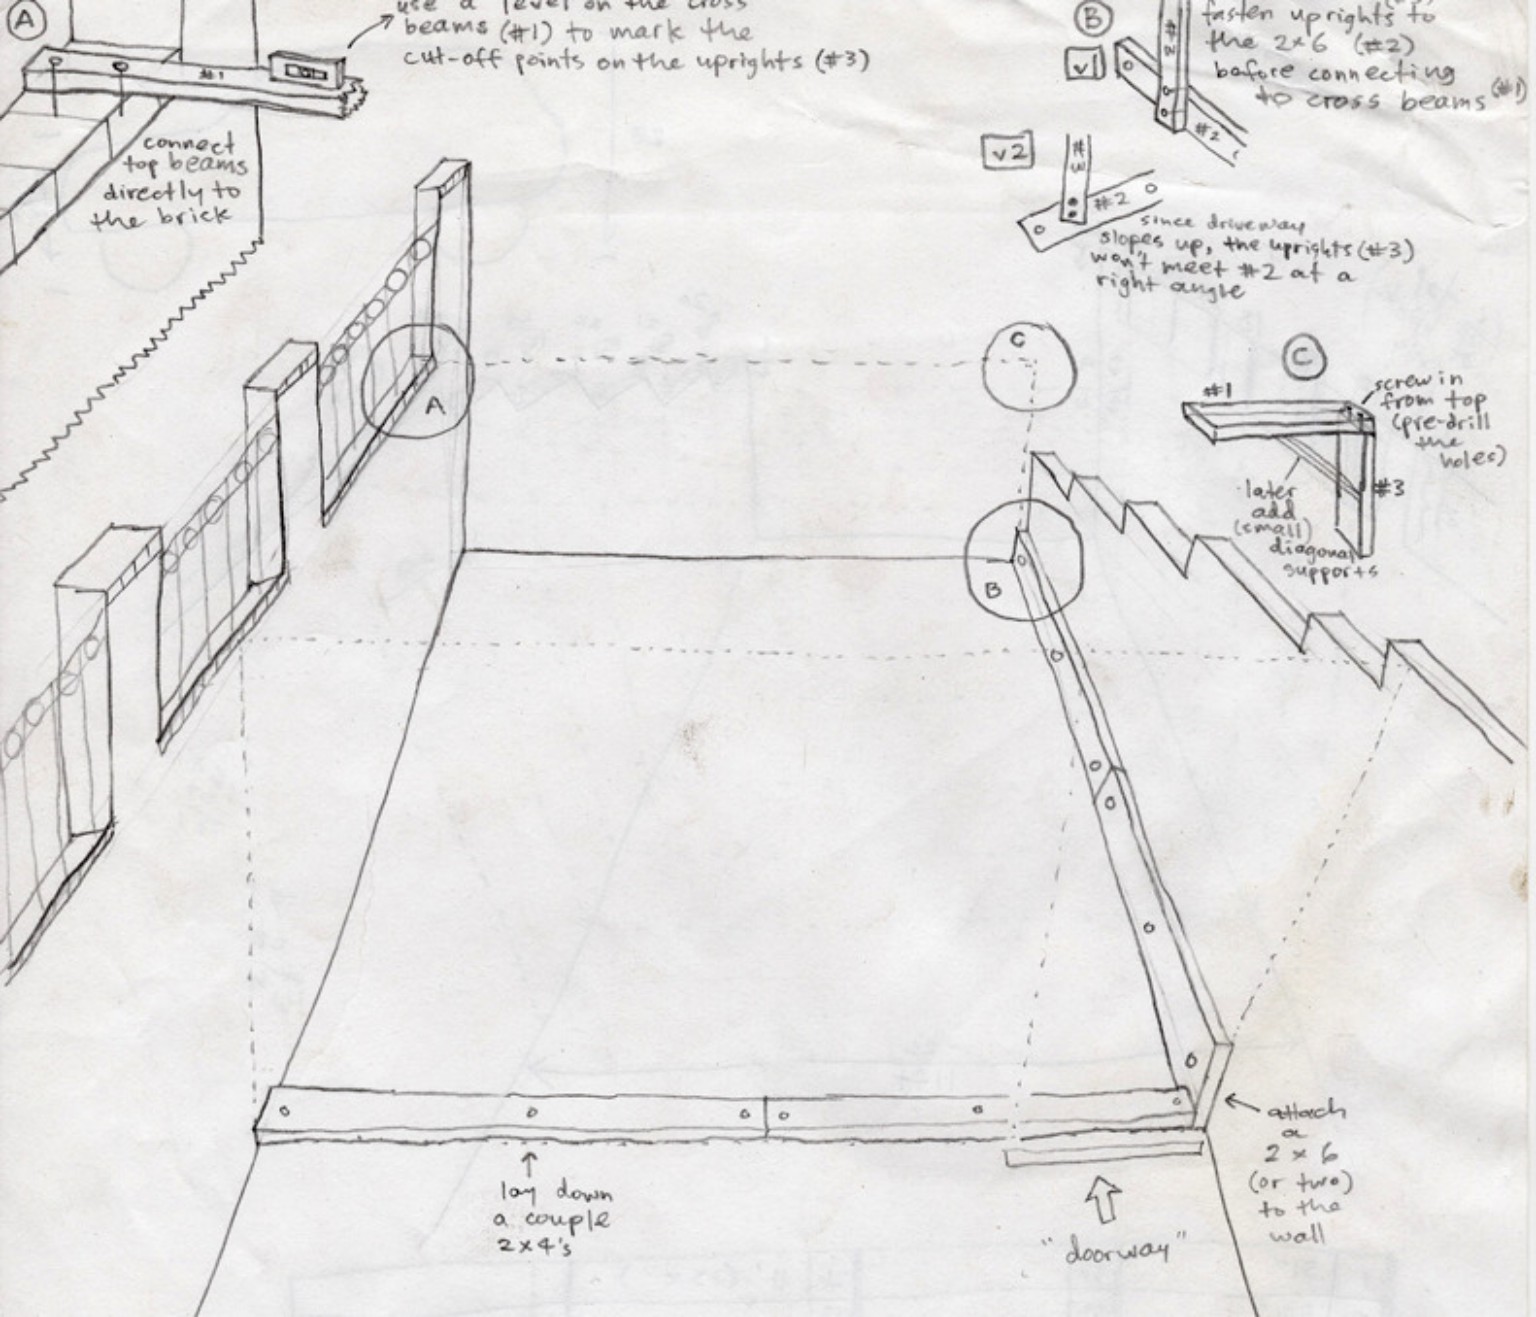 A
use a level on the cross
beams (#1) to mark the
cut-off points on the uprights (#3)
#1
connect
top beams
directly to
the brick
B
fasten uprights to
the 2x6 (#2)
before connecting
to cross beams (#1)
v1
#3
#2
v2
#3
#2
since driveway
slopes up, the uprights (#3)
won't meet #2 at a
right angle
C
#1
screw in
from top
(pre-drill
the
holes)
#3
later
add
(small)
diagonal
supports
A
C
B
attach
a
2 x 6
(or two)
to the
wall
lay down
a couple
2x4's
"doorway"